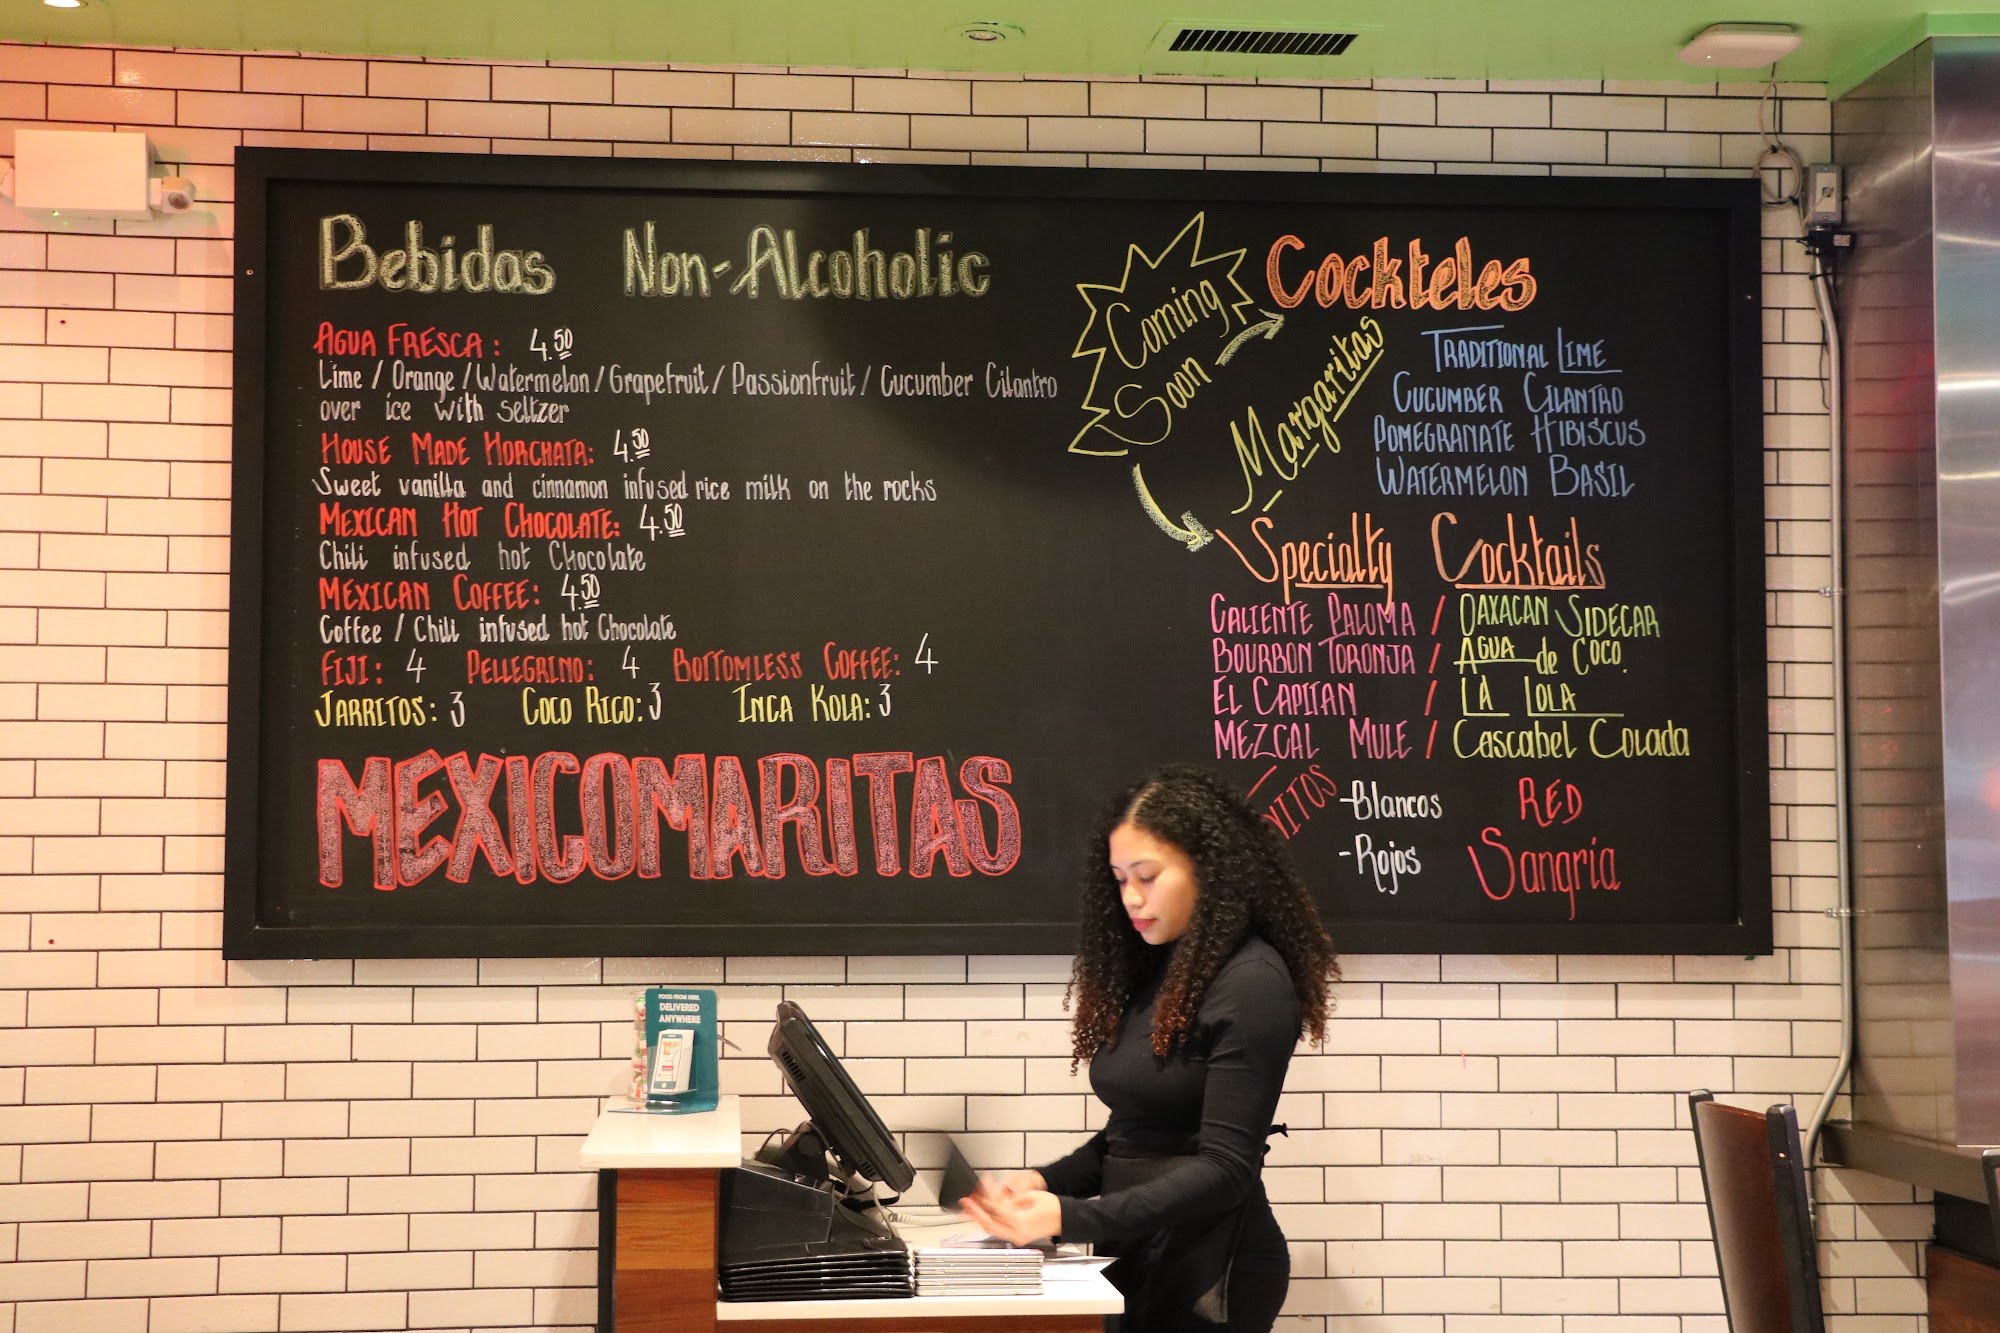 Bebidas Non-Alcoholic
AGUA FRESCA: 4.50
Lime / Orange / Watermelon / Grapefruit / Passionfruit / Cucumber Cilantro
over ice with seltzer
HOUSE MADE HORCHATA: 4.50
Sweet vanilla and cinnamon infused rice milk on the rocks
MEXICAN HOT CHOCOLATE: 4.50
Chili infused hot Chocolate
MEXICAN COFFEE: 4.50
Coffee / Chili infused hot Chocolate
FIJI: 4 PELLEGRINO: 4 BOTTOMLESS COFFEE: 4
JARRITOS: 3 COCO RICO: 3 INCA KOLA: 3
MEXICOMARITAS
Coming
Soon
Cockteles
Margaritas
TRADITIONAL LIME
CUCUMBER CILANTRO
POMEGRANATE HIBISCUS
WATERMELON BASIL
Specialty Cocktails
CALIENTE PALOMA / OAXACAN SIDECAR
BOURBON TORONJA / AGUA de COCO.
EL CAPITAN / LA LOLA
MEZCAL MULE / Cascabel Colada
-Blancos
-Rojos
RED
Sangria
FOOD FROM HERE,
DELIVERED
ANYWHERE